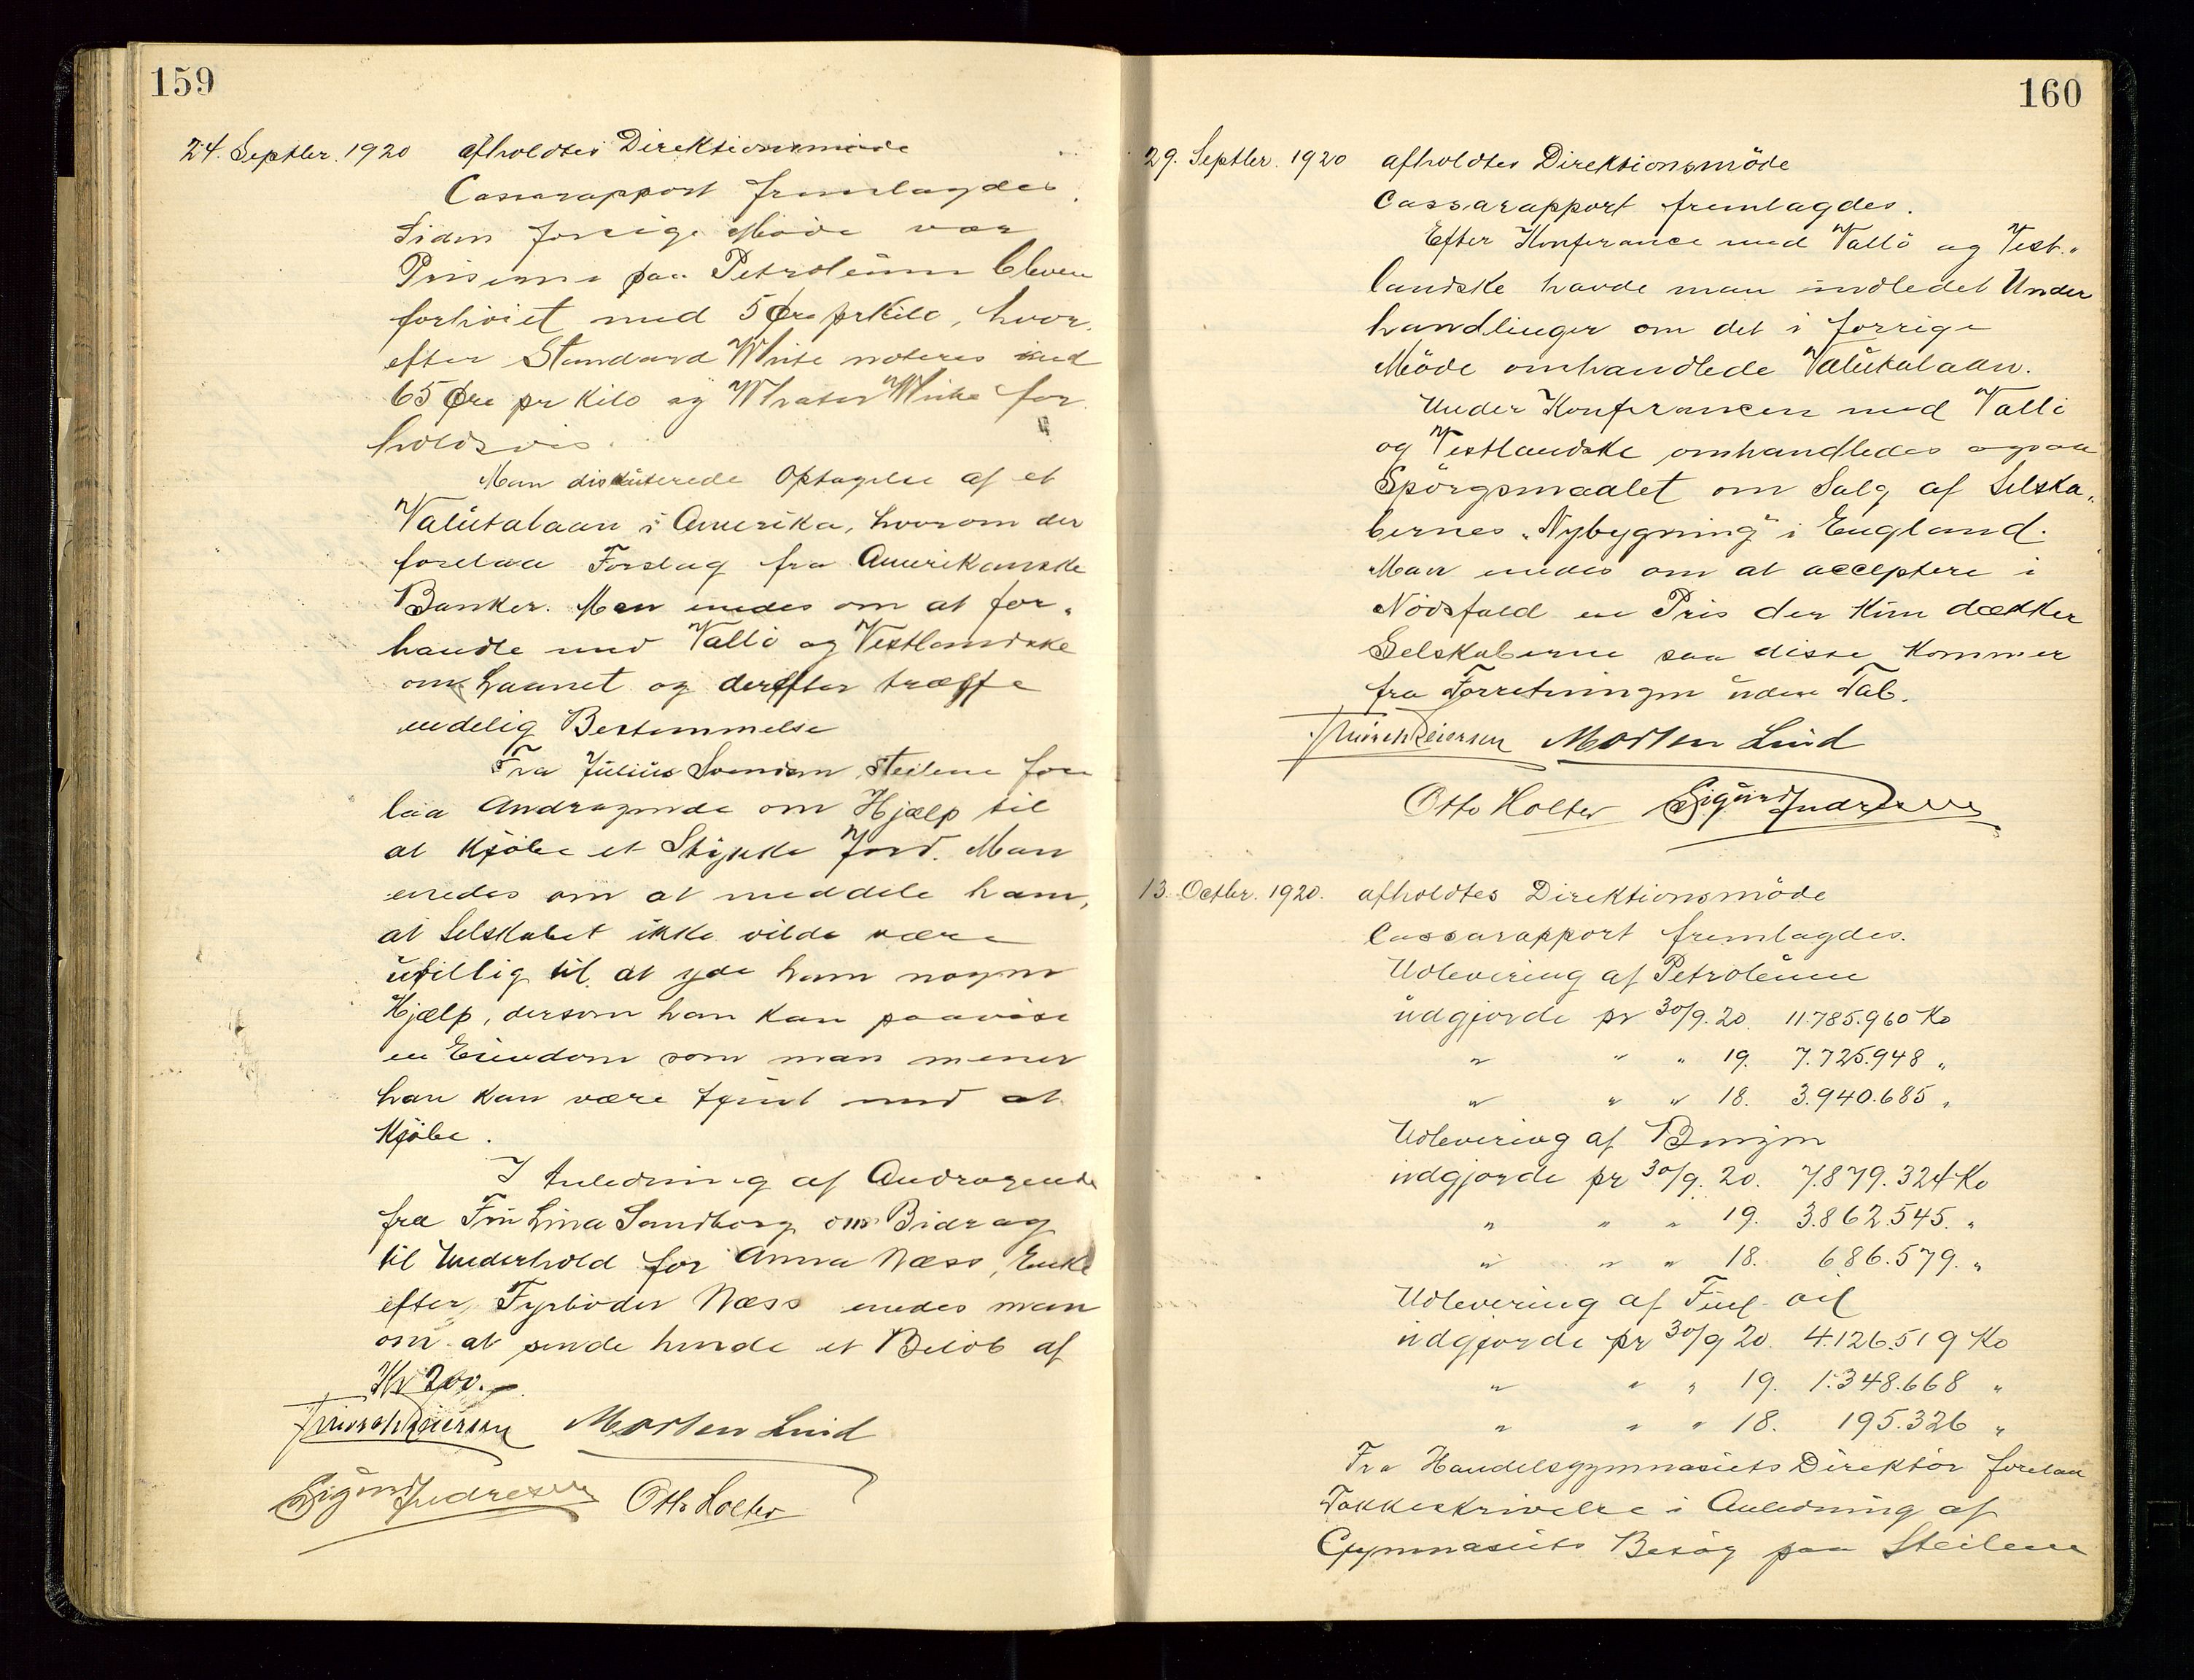 159
24. Septber. 1920 afholdtes Direktionsmöde
Cassarapport fremlagdes.
Siden forrige Möde var
Priserne paa Petroleum bleven
forhöiet med 5 Øre pr Kilo, hvor-
efter Standard White noteres med
65 Øre pr Kilo og Whater White for
holdsvis.
Man diskuterede Optagelse af et
Valutalaan i Amerika, hvorom der
forelaa Forslag fra Amerikanske
Banker. Man enedes om at for-
handle med Vallö og Vestlandske
om Laanet og derefter træffe
endelig Bestemmelse
Fra Julius Svendsen, Steilene fore
laa Andragende om Hjælp til
at kjöbe et Stykke Jord. Man
enedes om at meddele ham,
at Selskabet ikke vilde være
uvillig til at yde ham nogen
Hjælp, dersom han kan paavise
en Eiendom som man mener
han kan være tjent med at
kjöbe.
I Anledning af Andragende
fra Fru Lina Sandborg om Bidrag
til Underhold for Anna Næss, Enke
efter Fyrböder Næss enedes man
om at sende hende et Belöb af
Kr 200.-
Morten Lind
Sigurd Andresen Otto Holter
160
29. Septber. 1920 afholdtes Direktionsmöde
Cassarapport fremlagdes.
Efter Konferance med Vallö og Vest-
landske havde man indledet Under
handlinger om det i forrige
Möde omhandlede Valutalaan.
Under Konferancen med Vallö
og Vestlandske omhandledes ogsaa
Spörgsmaalet om Salg af Selska-
bernes "Nybygning" i England.
Man enedes om at acceptere i
Nödsfald en Pris der kun dækker
Selskaberne saa disse kommer
fra Forretningen uden Tab.
Morten Lind
Otto Holter Sigurd Andresen
13. Octbr. 1920. afholdtes Direktionsmöde
Cassarapport fremlagdes.
Udlevering af Petroleum
udgjorde pr 30/9. 20. 11.785.960 Ko
" " " 19. 7.725.948 "
" " " 18. 3.940.685 "
Udlevering af Benzin
udgjorde pr 30/9. 20. 7.879.324 Ko
" " " 19. 3.862.545. "
" " " 18. 686.579. "
Udlevering af Fuel-oil
udgjorde pr 30/9 20. 4.126.519 Ko
" " " 19. 1.348.668 "
" " " 18. 195.326 "
Fra Handelsgymnasiets Direktör forelaa
Takkeskrivelse i Anledning af
Gymnasiets Besög paa Steilene